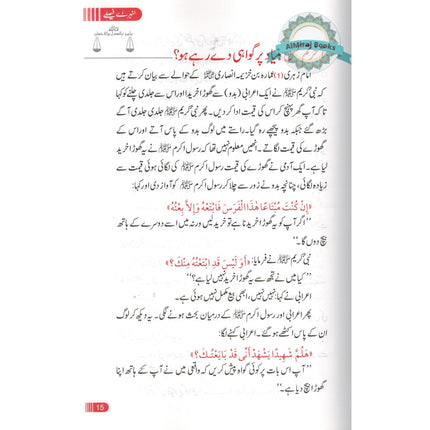 سنہرے فیصلے
AlMiraj Books
پر گواہی دے رہے ہو؟
امام زہری (۱) عمارہ بن خزیمہ انصاری کے حوالے سے بیان کرتے ہیں
کہ نبی کریم ﷺ نے ایک اعرابی (بدو) سے گھوڑا خریدا اور اس سے جلدی چلنے کو کہا
تاکہ آپ گھر پہنچ کر اس کی قیمت ادا کر دیں۔ پھر نبی کریم ﷺ جلدی جلدی آگے
بڑھ گئے جبکہ بدو پیچھے رہ گیا۔ راستے میں لوگ بدو کے پاس آتے اور اس
کے گھوڑے کی قیمت لگاتے۔ انھیں معلوم نہیں تھا کہ رسول اکرم ﷺ نے گھوڑا خرید
لیا ہے۔ ایک آدمی نے گھوڑے کی قیمت رسول اکرم ﷺ کی لگائی ہوئی قیمت سے
زیادہ لگائی، چنانچہ بدو نے زور سے چلا کر رسول اکرم ﷺ کو آواز دی اور کہا:
«إِنْ كُنْتَ مُبْتَاعًا هٰذَا الْفَرَسَ فَابْتَعْهُ وَإِلَّا بِعْتُهُ»
”اگر آپ کو یہ گھوڑا خریدنا ہے تو خرید لیں ورنہ میں اسے دوسرے کے ہاتھ
بیچ دوں گا۔“
نبی کریم ﷺ نے فرمایا: «أَوَ لَيْسَ قَدِ ابْتَعْتُهُ مِنْكَ؟»
”کیا میں نے تجھ سے یہ گھوڑا خرید نہیں لیا ہے؟“
اعرابی نے کہا: نہیں نہیں، ابھی بیع مکمل نہیں ہوئی ہے۔
پھر اعرابی اور رسول اکرم ﷺ کے درمیان بحث ہونے لگی۔ یہ دیکھ کر لوگ
ان کے پاس اکٹھے ہو گئے۔ اعرابی کہنے لگا:
«هَلُمَّ شَهِيدًا يَشْهَدُ أَنِّي قَدْ بَايَعْتُكَ؟»
”آپ اس بات پر کوئی گواہ پیش کریں کہ واقعی میں نے آپ کے ہاتھ اپنا
گھوڑا بیچ دیا ہے۔“
15